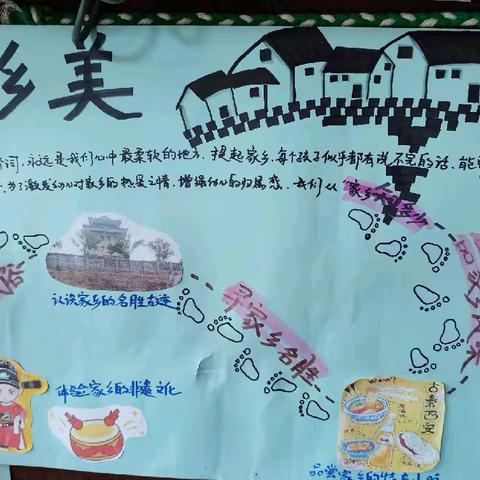 乡美
词,永远是我们心中最柔软的地方,提起家乡,每个孩子似乎都有说不完的话,能
为了激发幼儿对家乡的热爱之情,增强幼儿的归属感,我们从"家乡知多少
认识家乡的名胜古迹
寻家乡名胜
体验家乡的非遗文化
wow!
古秦西安
品尝家乡的特色小吃